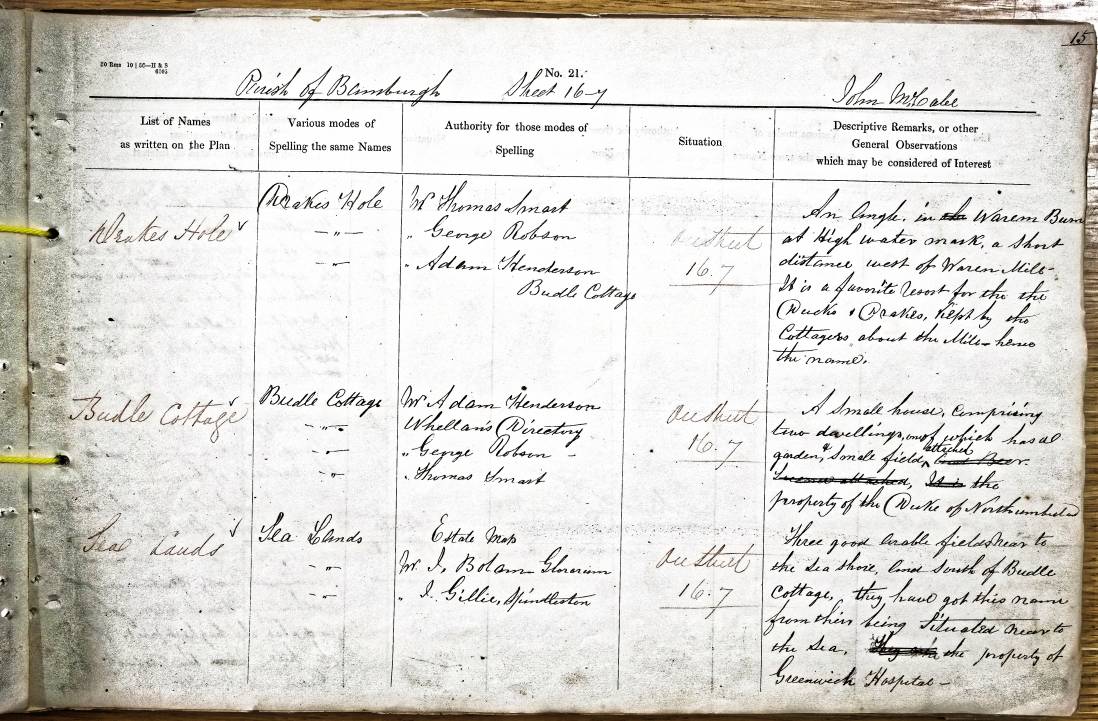 15
20 Rms 10 | 56—H & S
6105
No. 21.
Parish of Bamburgh Sheet 16-7 John McCabe
List of Names
as written on the Plan
Various modes of
Spelling the same Names
Authority for those modes of
Spelling
Situation
Descriptive Remarks, or other
General Observations
which may be considered of Interest
Drakes Hole
Drakes Hole
— " —
— " —
Mr Thomas Smart
" George Robson
" Adam Henderson
Budle Cottage
On Sheet
16.7
An Angle, in the Warem Burn
at High water mark, a short
distance west of Waren Mill-
It is a favorite resort for the the
Ducks & Drakes, kept by the
Cottagers about the Mill - hence
the name.
Budle Cottage
Budle Cottage
— " —
— " —
— " —
Mr Adam Henderson
Whellans Directory
" George Robson —
" Thomas Smart
On Sheet
16.7
A small house, comprising
two dwellings, one of which has a
garden, & small field, attached
the
property of the Duke of Northumberland
Sea Lands
Sea Lands
— " —
— " —
Estate Map
Mr I. Bolam
" I. Gillie, Spindleston
On Sheet
16.7
Three good Arable fields near to
the Sea Shore, and South of Budle
Cottage, they have got this name
from their being Situated near to
the Sea. They are the property of
Greenwich Hospital —